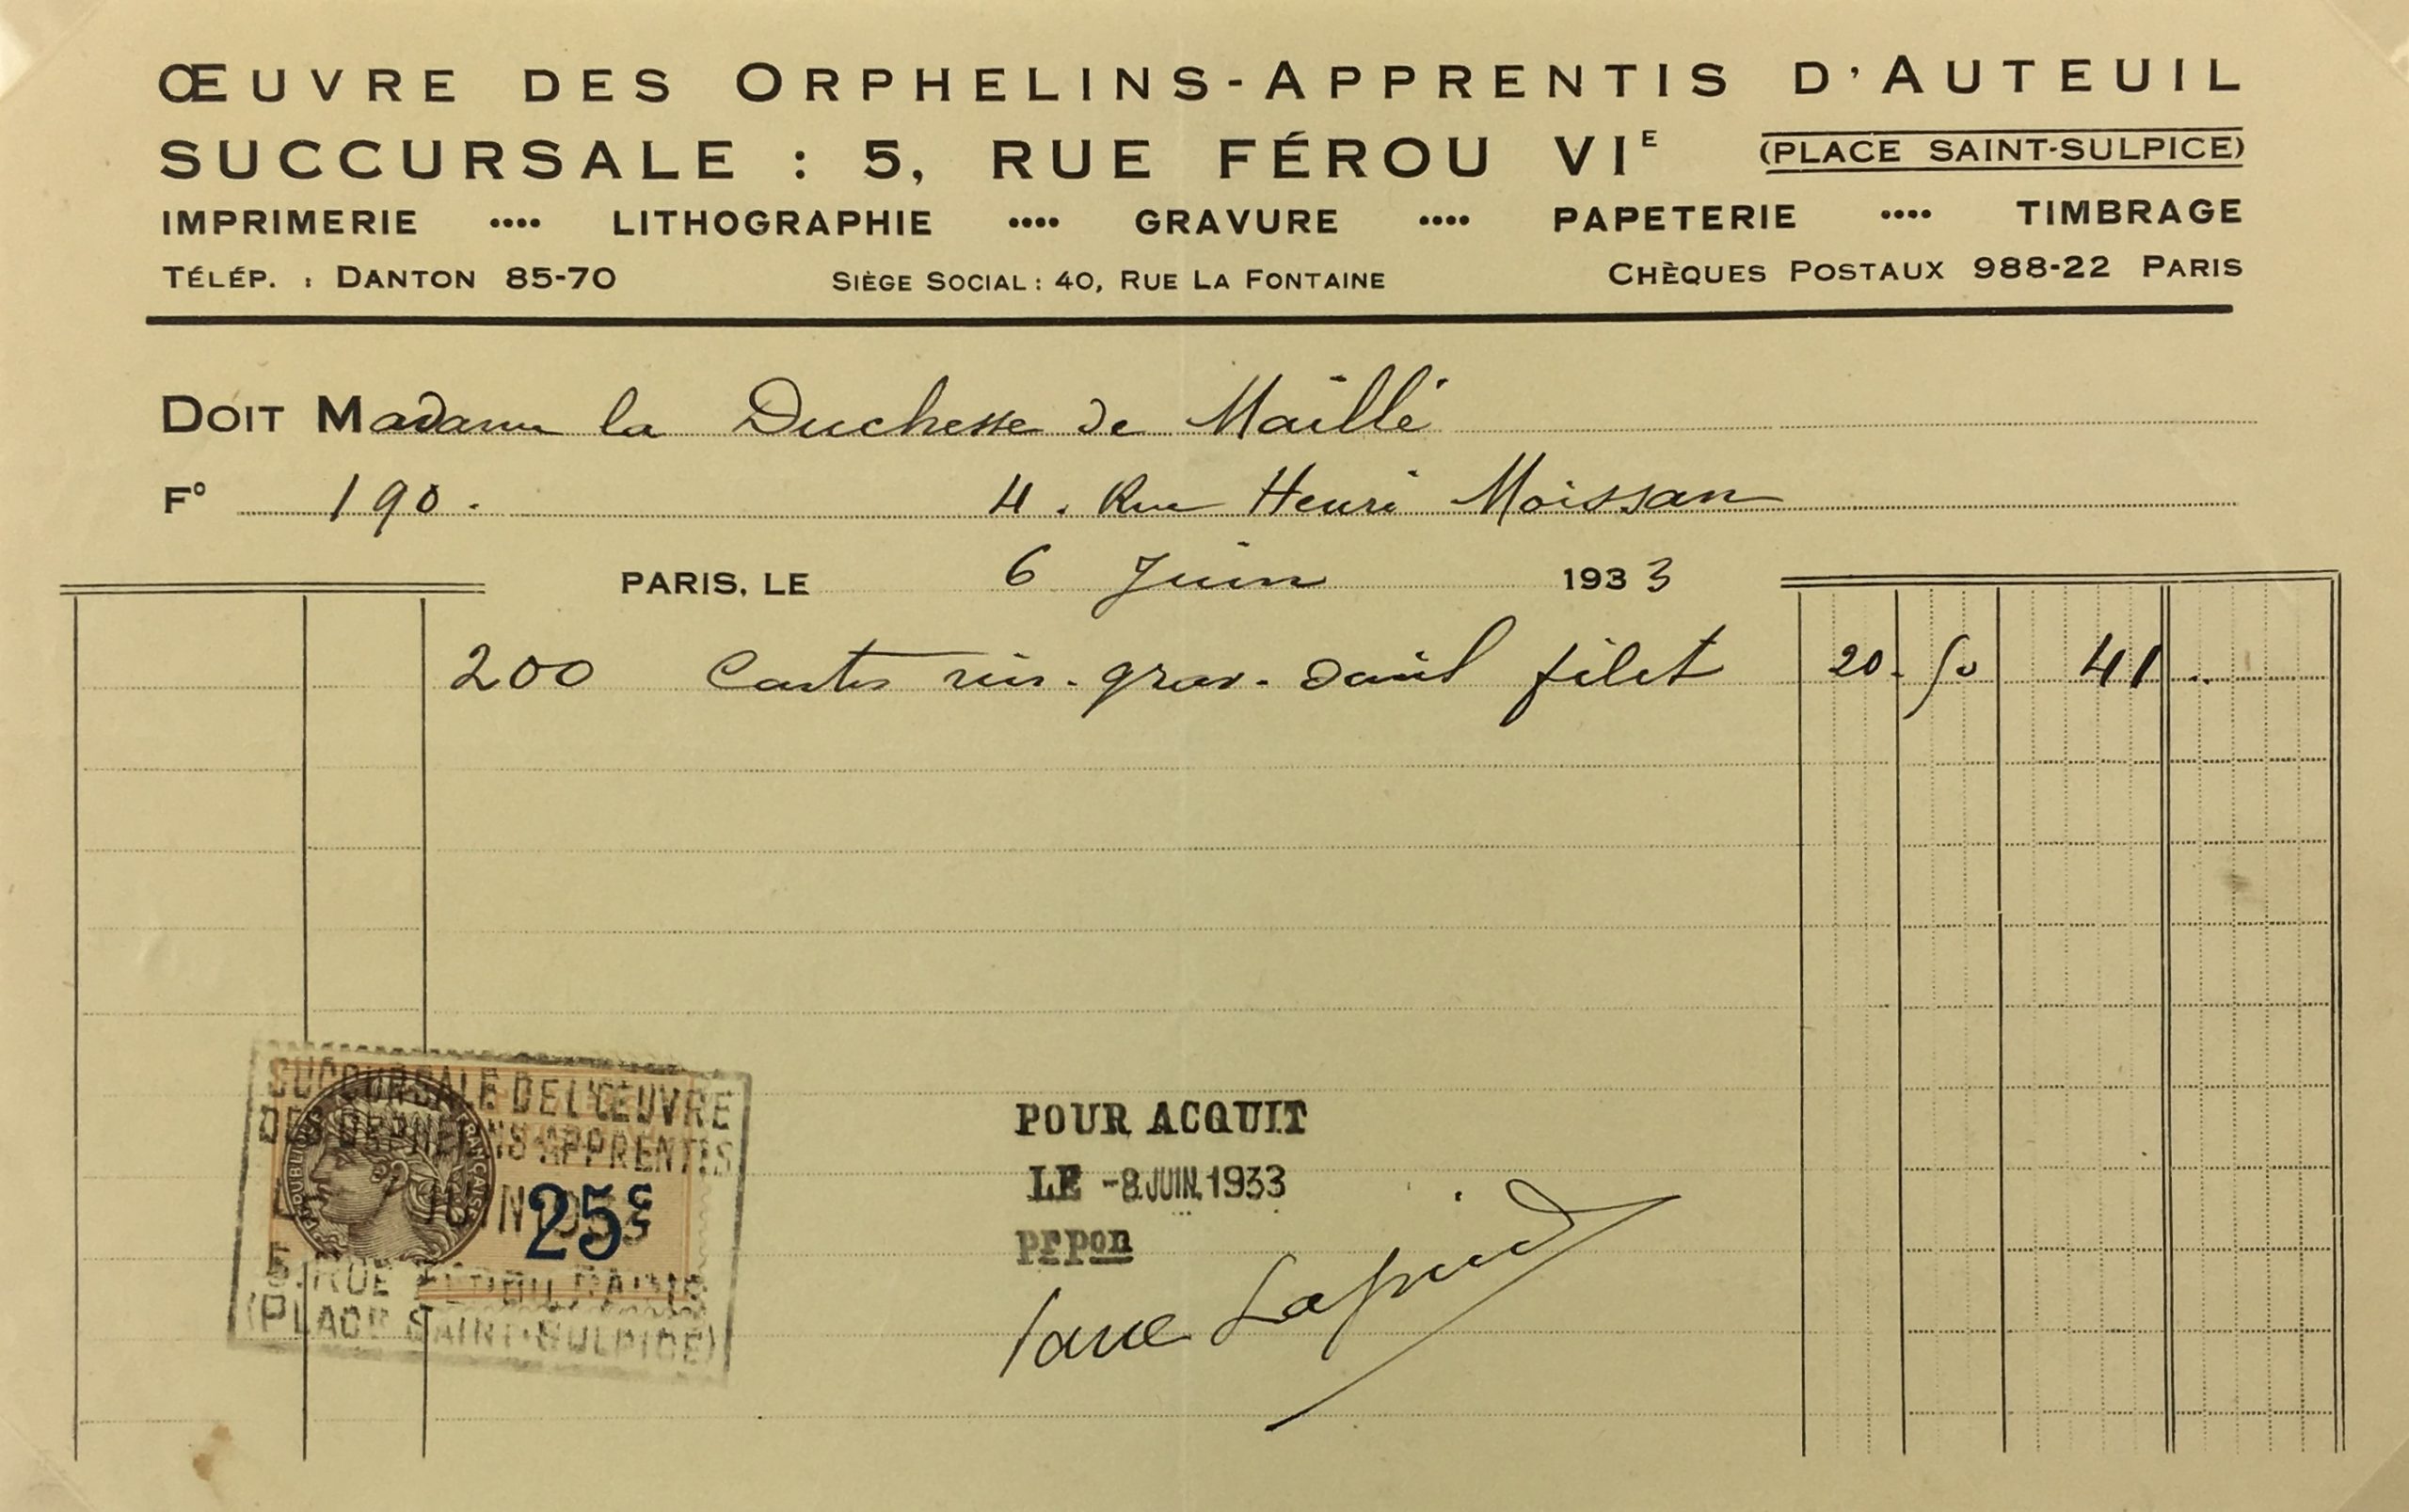 ŒUVRE DES ORPHELINS-APPRENTIS D'AUTEUIL
SUCCURSALE : 5, RUE FÉROU VIE (PLACE SAINT-SULPICE)
IMPRIMERIE •••• LITHOGRAPHIE •••• GRAVURE •••• PAPETERIE •••• TIMBRAGE
TÉLÉP. : DANTON 85-70 SIÈGE SOCIAL : 40, RUE LA FONTAINE CHÈQUES POSTAUX 988-22 PARIS
DOIT Madame la Duchesse de Maillé
Fº 190. 4. Rue Henri Moissan
PARIS, LE 6 Juin 1933
200 Cartes vis. grav. deuil filet 20. 50 41 ..
SUCCURSALE DE L'ŒUVRE
DES ORPHELINS-APPRENTIS
RÉPUBLIQUE FRANÇAISE
JUIN
25c
5, RUE FÉROU PARIS
(PLACE SAINT-SULPICE)
POUR ACQUIT
LE -8 JUIN. 1933
prpon